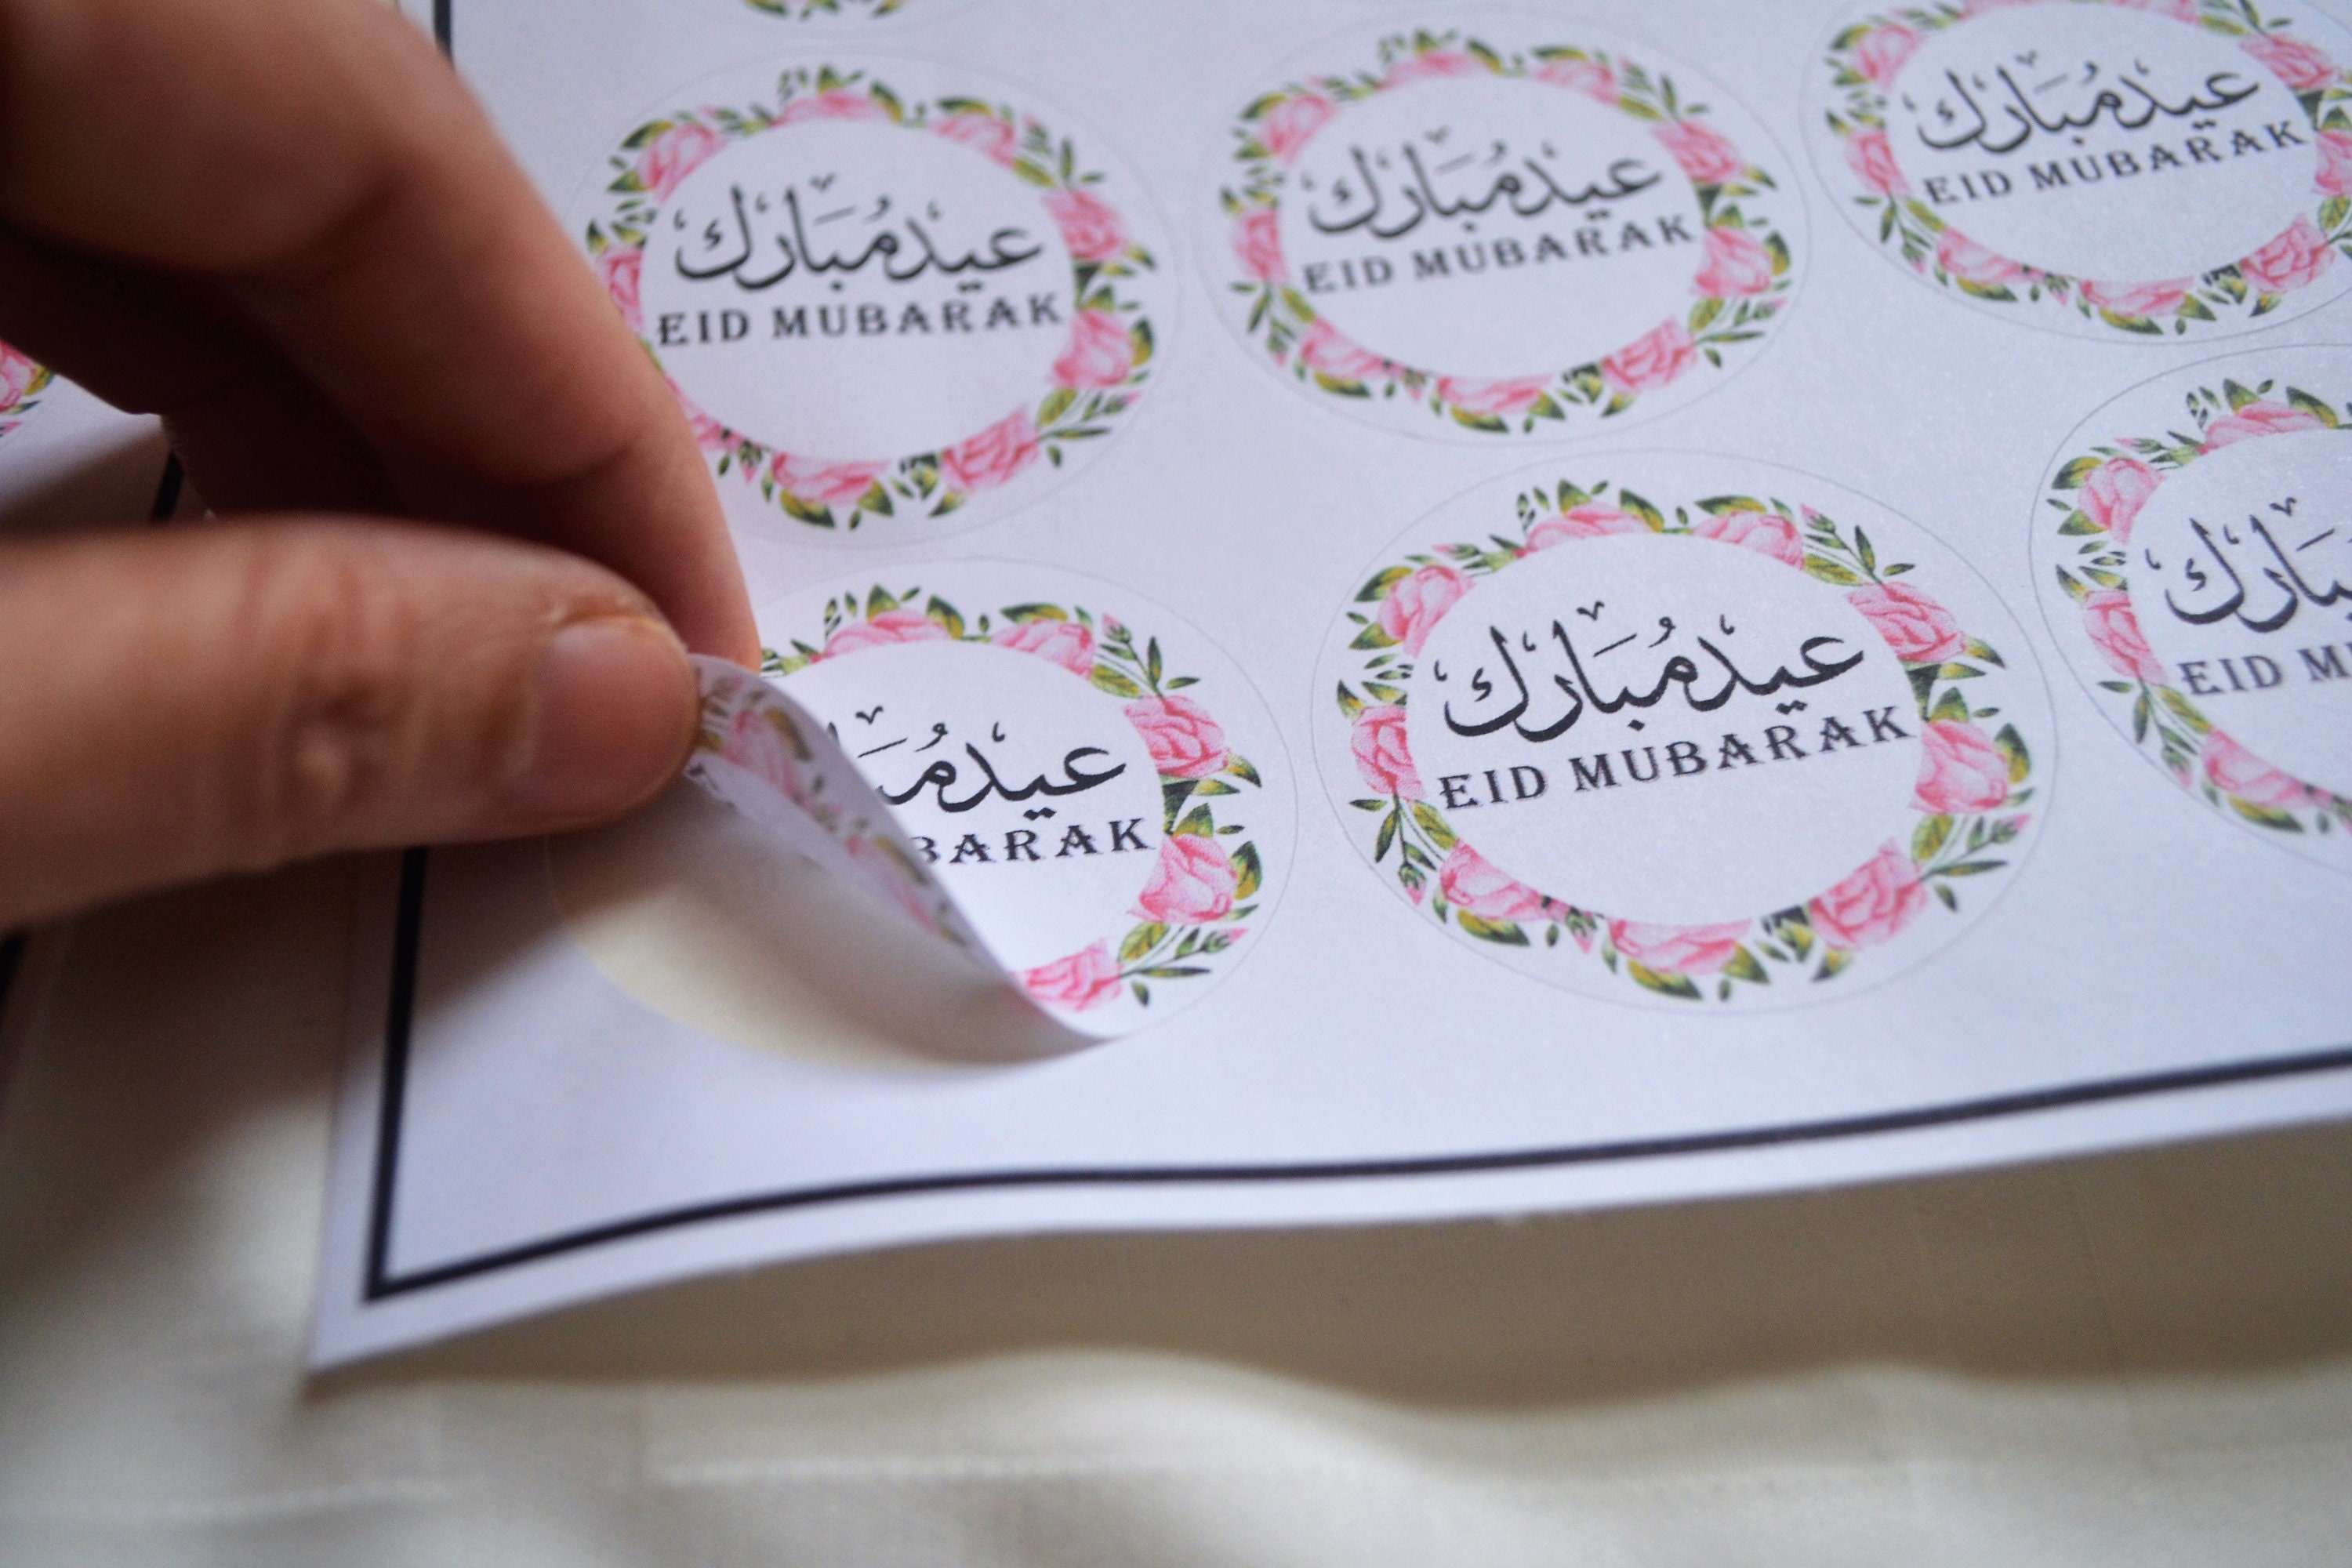 عيد مُبارك
EID MUBARAK
عيد مُبارك
EID MUBARAK
عيد مُبارك
EID MUBARAK
عيد مُبـ
BARAK
عيد مُبارك
EID MUBARAK
بارك
EID M